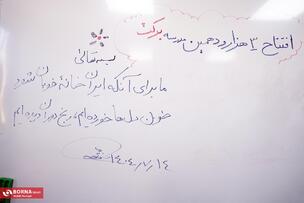 افتتاح ۳ هزار و دهمین مدرسه برکت
بسمه تعالی
ما برای آنکه ایران خانه خوبان شود
خون دل‌ها خورده‌ایم، رنج دوران برده‌ایم
۱۴۰۴/۷/۱۴
BORNA